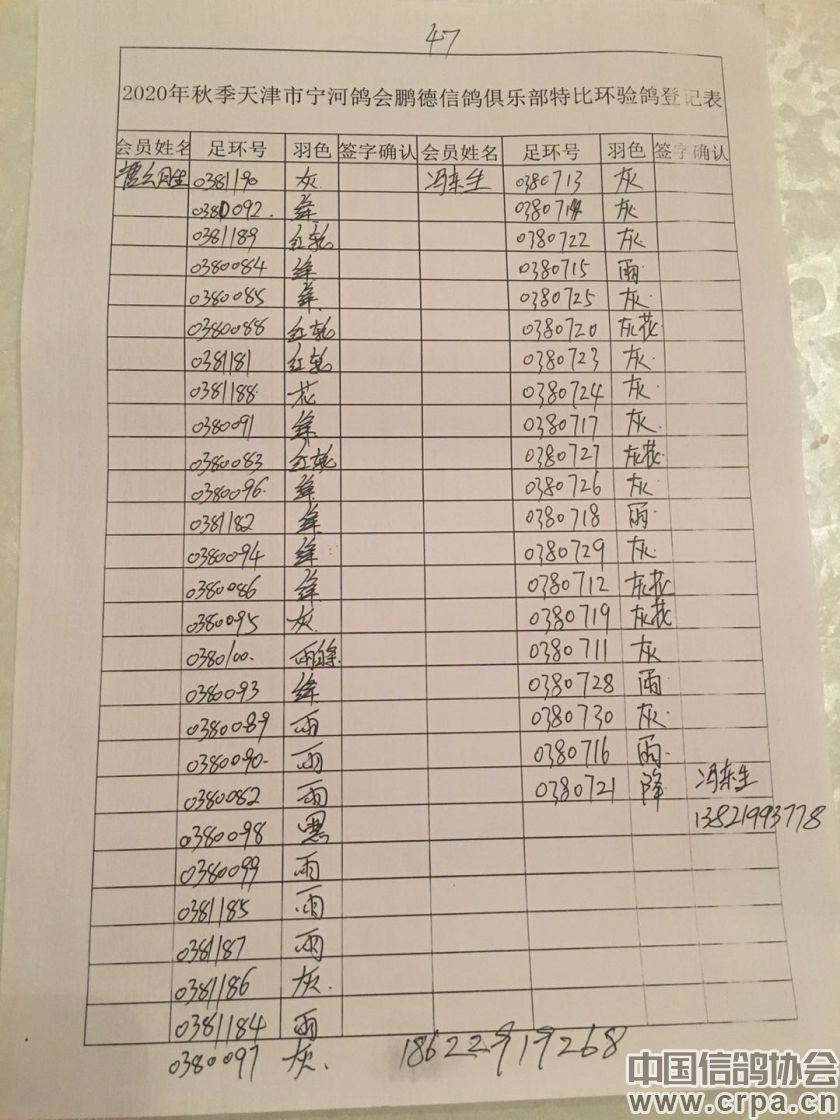 47
2020年秋季天津市宁河鸽会鹏德信鸽俱乐部特比环验鸽登记表
会员姓名 足环号 羽色 签字确认 会员姓名 足环号 羽色 签字确认
0381190 灰 冯东生 0380713 灰
0380092. 绛 0380714 灰
0381189 红轮 0780722 灰
0380084 绛 0380715 雨
0380085 绛 0380725 灰
0380088 红轮 0380720 灰花
0381181 红轮 0380723 灰
0381188 花 0380724 灰
0380091 绛 0380717 灰
0380083 红轮 0380727 灰花
0380096 绛 0380726 灰
0381182 绛 0380718 雨
0380094 绛 0380729 灰
0380086 绛 0380712 灰花
0380095 灰 0380719 灰花
0380100 雨绛 0380711 灰
0380093 绛 0380728 雨
0380089 雨 0380730 灰
0380090 雨 0380716 雨
0380082 雨 0380721 降 冯东生
0380098 黑 13821993778
0380099 雨
0381185 雨
0381187 雨
0381186 灰
0381184 雨
0380097 灰 18622919268
中国信鸽协会
www.crpa.cn